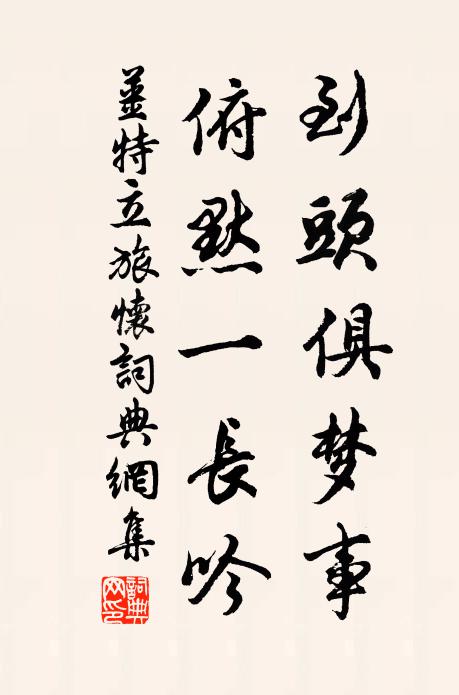 到頭俱梦事
俯默一長吟
姜特立旅懷詞典網集
詞典网印